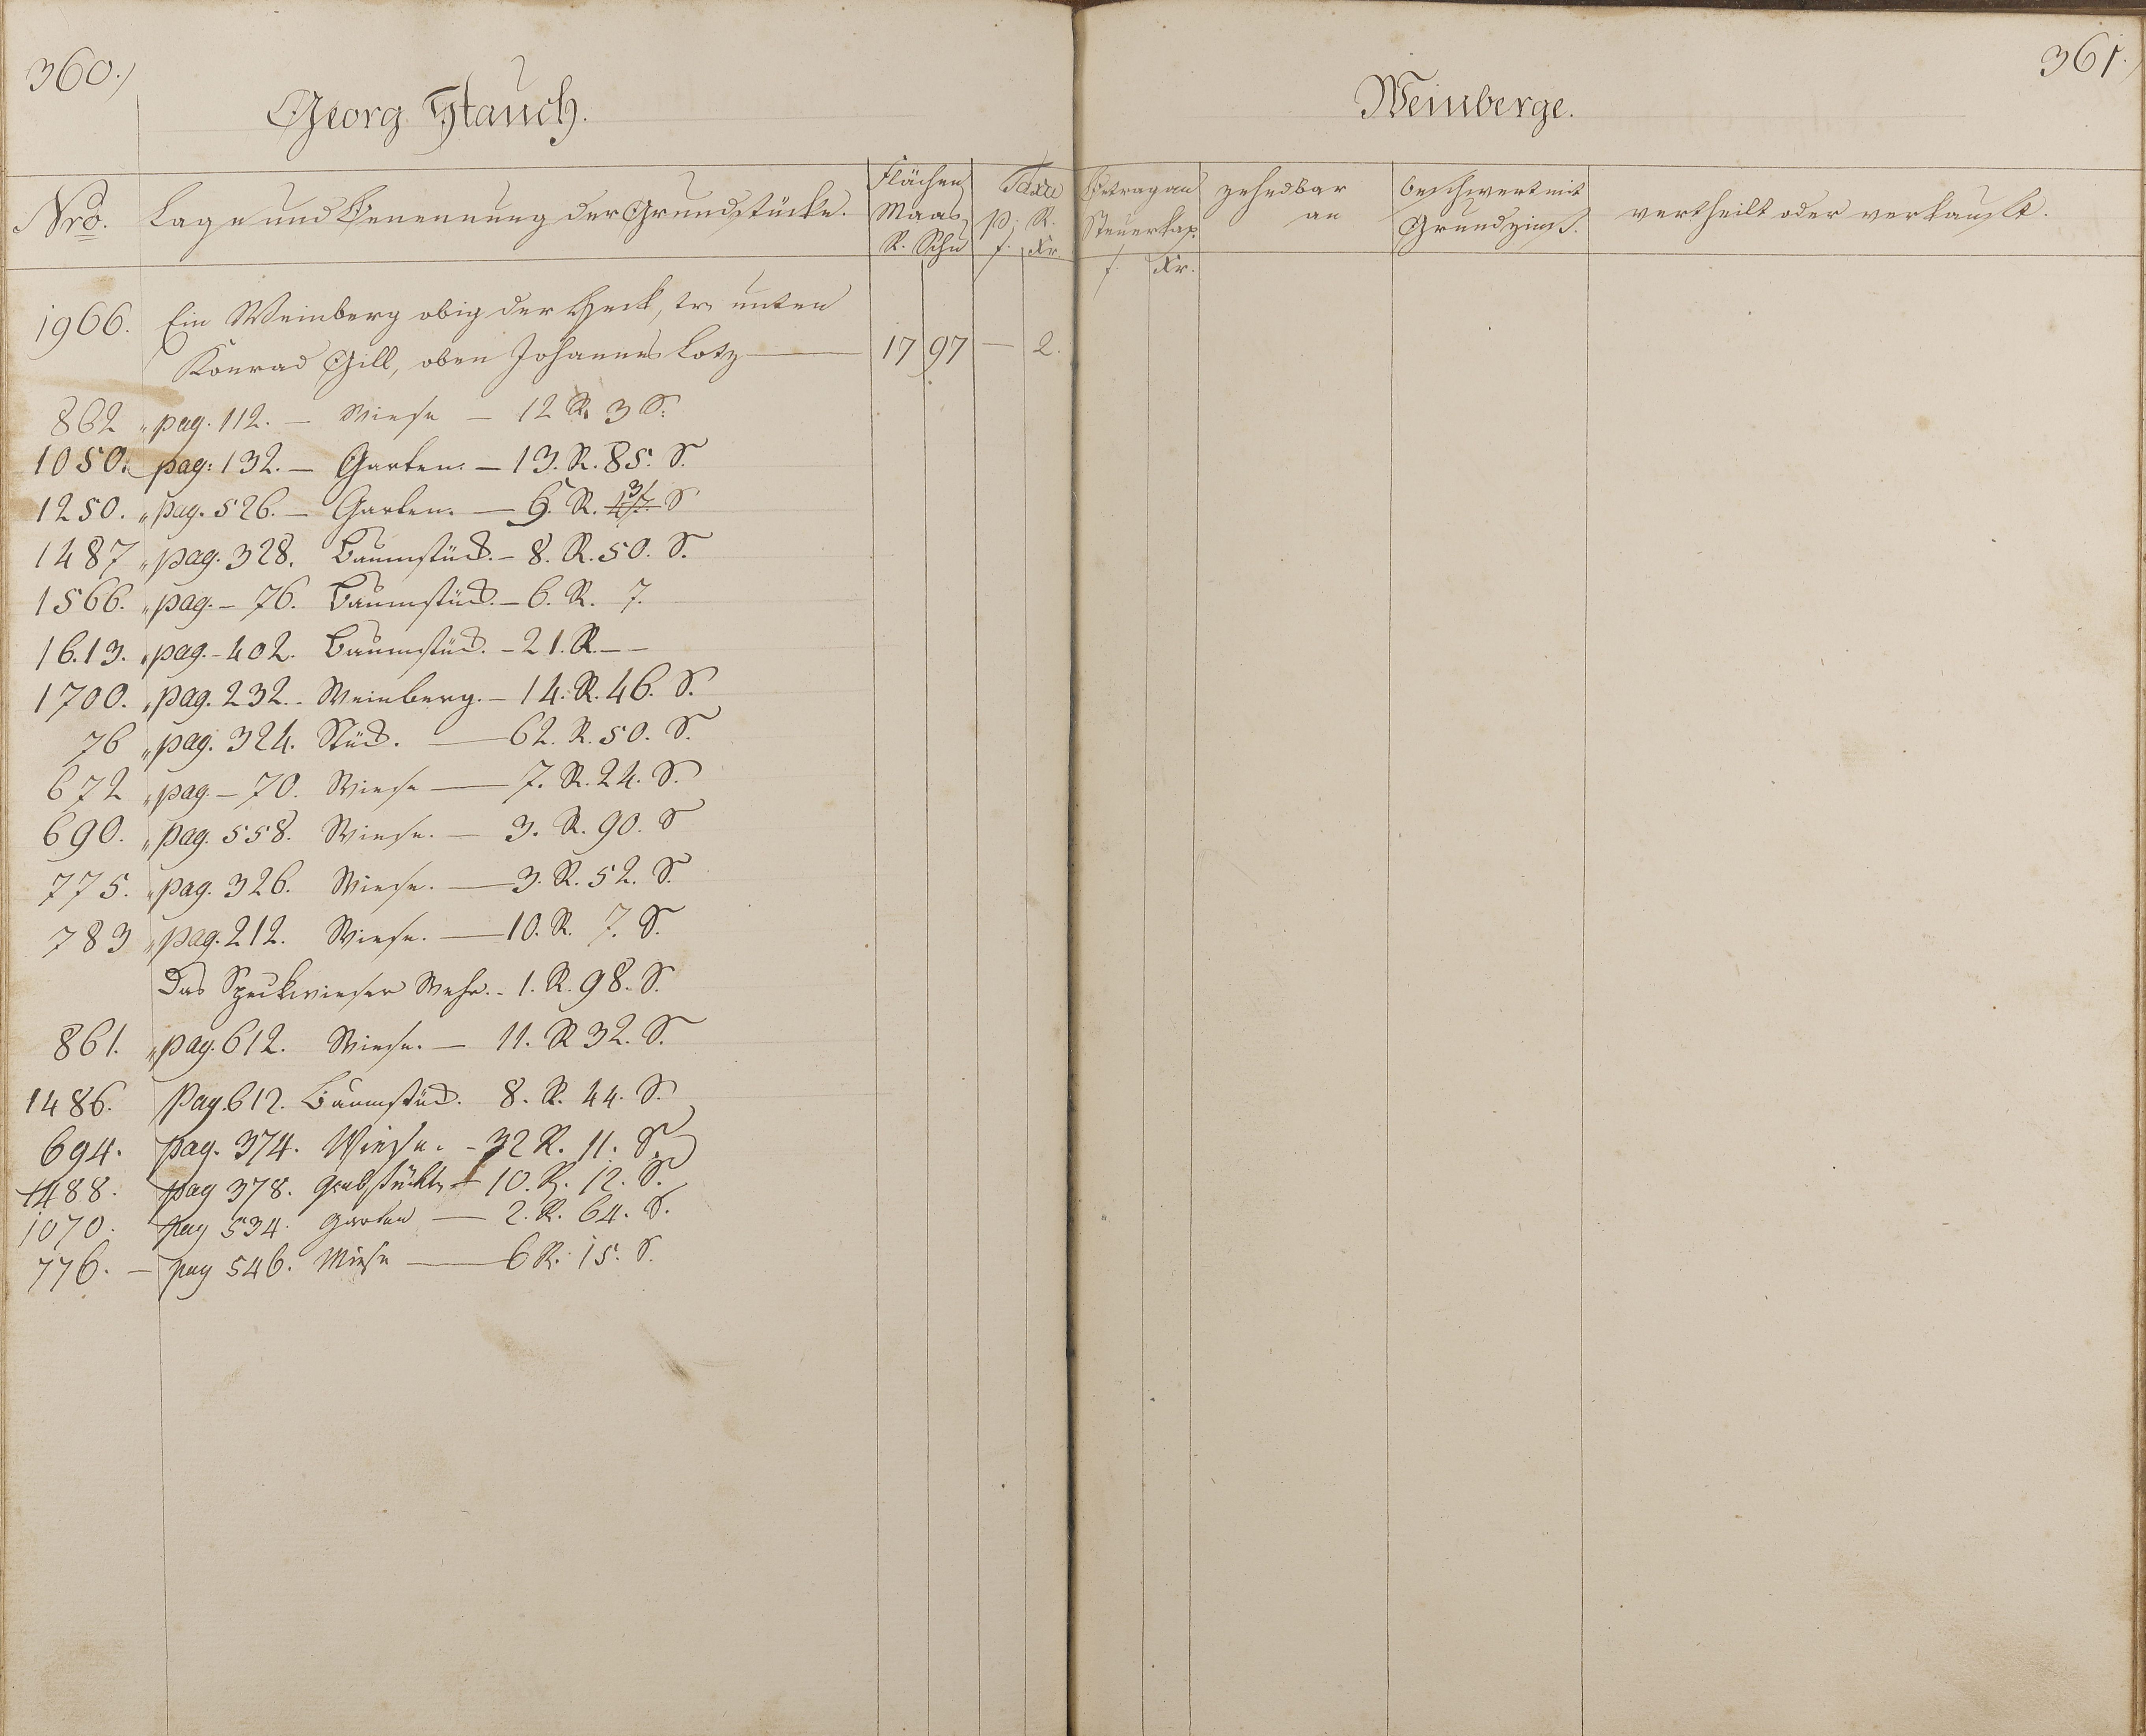 360.)
Georg Stauch.
Nro. Lage und Benennung der Grundstücke. Flächen Maas R. Schu Taxe p. R. f. Xr.
1966. Ein Weinberg obig der Heck, tr. unten
Konrad Gill, oben Johannes Lotz — 17 97 — 2.
862 „ pag. 112. — Wiese — 12 R. 3 S.
1050. „ pag: 132. — Garten. — 13. R. 85. S.
1250. „ pag. 526. — Garten. — R. 31 S
1487 „ pag. 328. Baumstück. — 8. R. 50. S.
1566. „ pag. — 76. Baumstück. — 6. R. 7.
16.13. „ pag. — 402. Baumstück. — 21. R. — —
1700. „ pag. 232. — Weinberg. — 14. R. 46. S.
76 „ pag. 324. Stück. — 62. R. 50. S.
672 „ pag. — 70. Wiese — 7. R. 24. S.
690. „ pag. 558. Wiese. — 3. R. 90. S
775. „ pag. 326. Wiese. — 3. R. 52. S.
783 „ pag. 212. Wiese. — 10. R. 7. S.
Das Speckwieser Wehr. — 1. R. 98. S.
861. „ pag. 612. Wiese. — 11. R 32. S.
1486. Pag. 612. Baumstück. 8. R. 44. S.
694. pag. 374. Wiese. — 32 R. 11. S.
1488. pag 378. — 10. R. 12. S.
1070. pag 534. Garten — 2. R. 64. S.
776. — pag 546. Wiese — 6 R. 15. S.
361.)
Weinberge.
Betrag an Steuerkap. f. Xr. zehndbar an beschwert mit Grundzins. vertheilt oder verkauft.